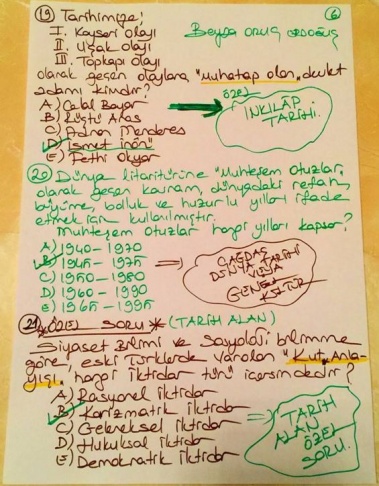 (19) Tarihimize;
(6)
I. Kayseri olayı
Beyza Oruç Erdoğuş
II. Uşak olayı
III. Topkapı olayı
olarak geçen olaylara, "muhatap olan, devlet
adamı kimdir?
ÖZEL
A) Celal Bayar
İNKILÂP
TARİHİ.
B) Rüştü Aras
C) Adnan Menderes
D) İsmet inönü
E) Fethi Okyar
(20) Dünya litaritürüne "Muhteşem Otuzlar,
olarak geçen kavram, dünyadaki refah,
büyüme, bolluk ve huzurlu yılları ifade
etmek için kullanılmıştır.
Muhteşem Otuzlar hangi yılları kapsar?
A) 1940-1970
B) 1945-1975
C) 1950-1980
D) 1960-1990
E) 1965-1995
ÇAĞDAŞ
DÜNYA TARİHİ
VEYA
GENEL
KÜLTÜR
(21) *ÖZEL SORU* (TARİH ALAN)
Siyaset Bilimi ve Sosyoloji bilimine
göre, eski Türklerde varolan "Kut, Anla-
yışı, hangi iktidar türü" içersindedir?
A) Rasyonel iktidar
B) Karizmatik iktidar
C) Geleneksel iktidar
D) Hukuksal iktidar
E) Demokratik iktidar
TARİH
ALAN
ÖZEL
SORU.